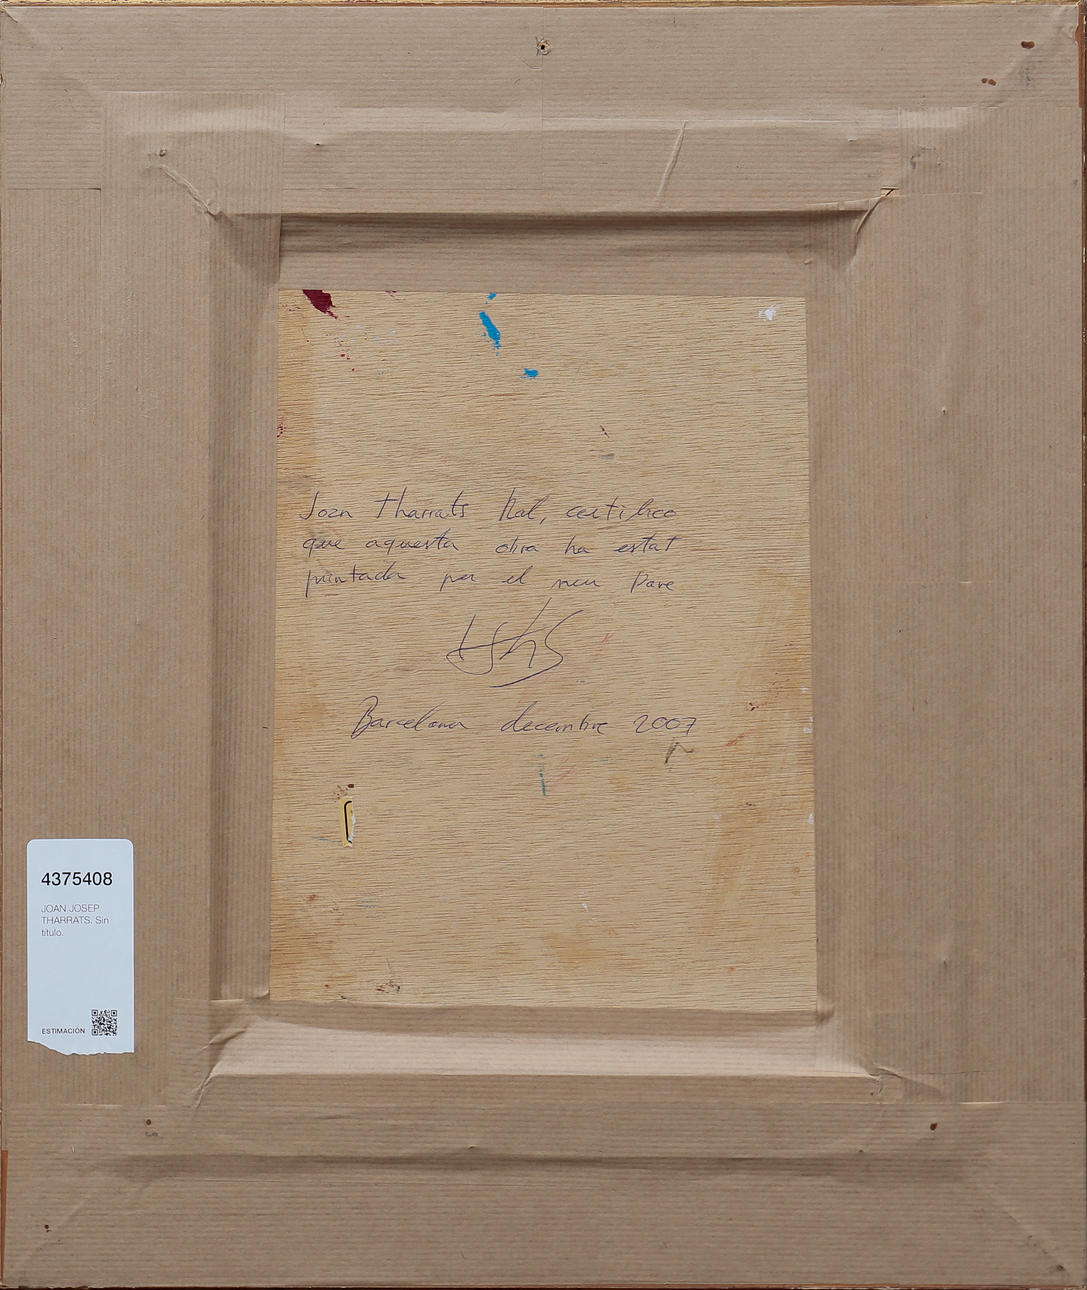 Joan Tharrats certifico
que aquesta obra ha estat
pintada per el meu Pare
Barcelona decembre 2007
4375408
JOAN JOSEP
THARRATS. Sin
título.
ESTIMACIÓN